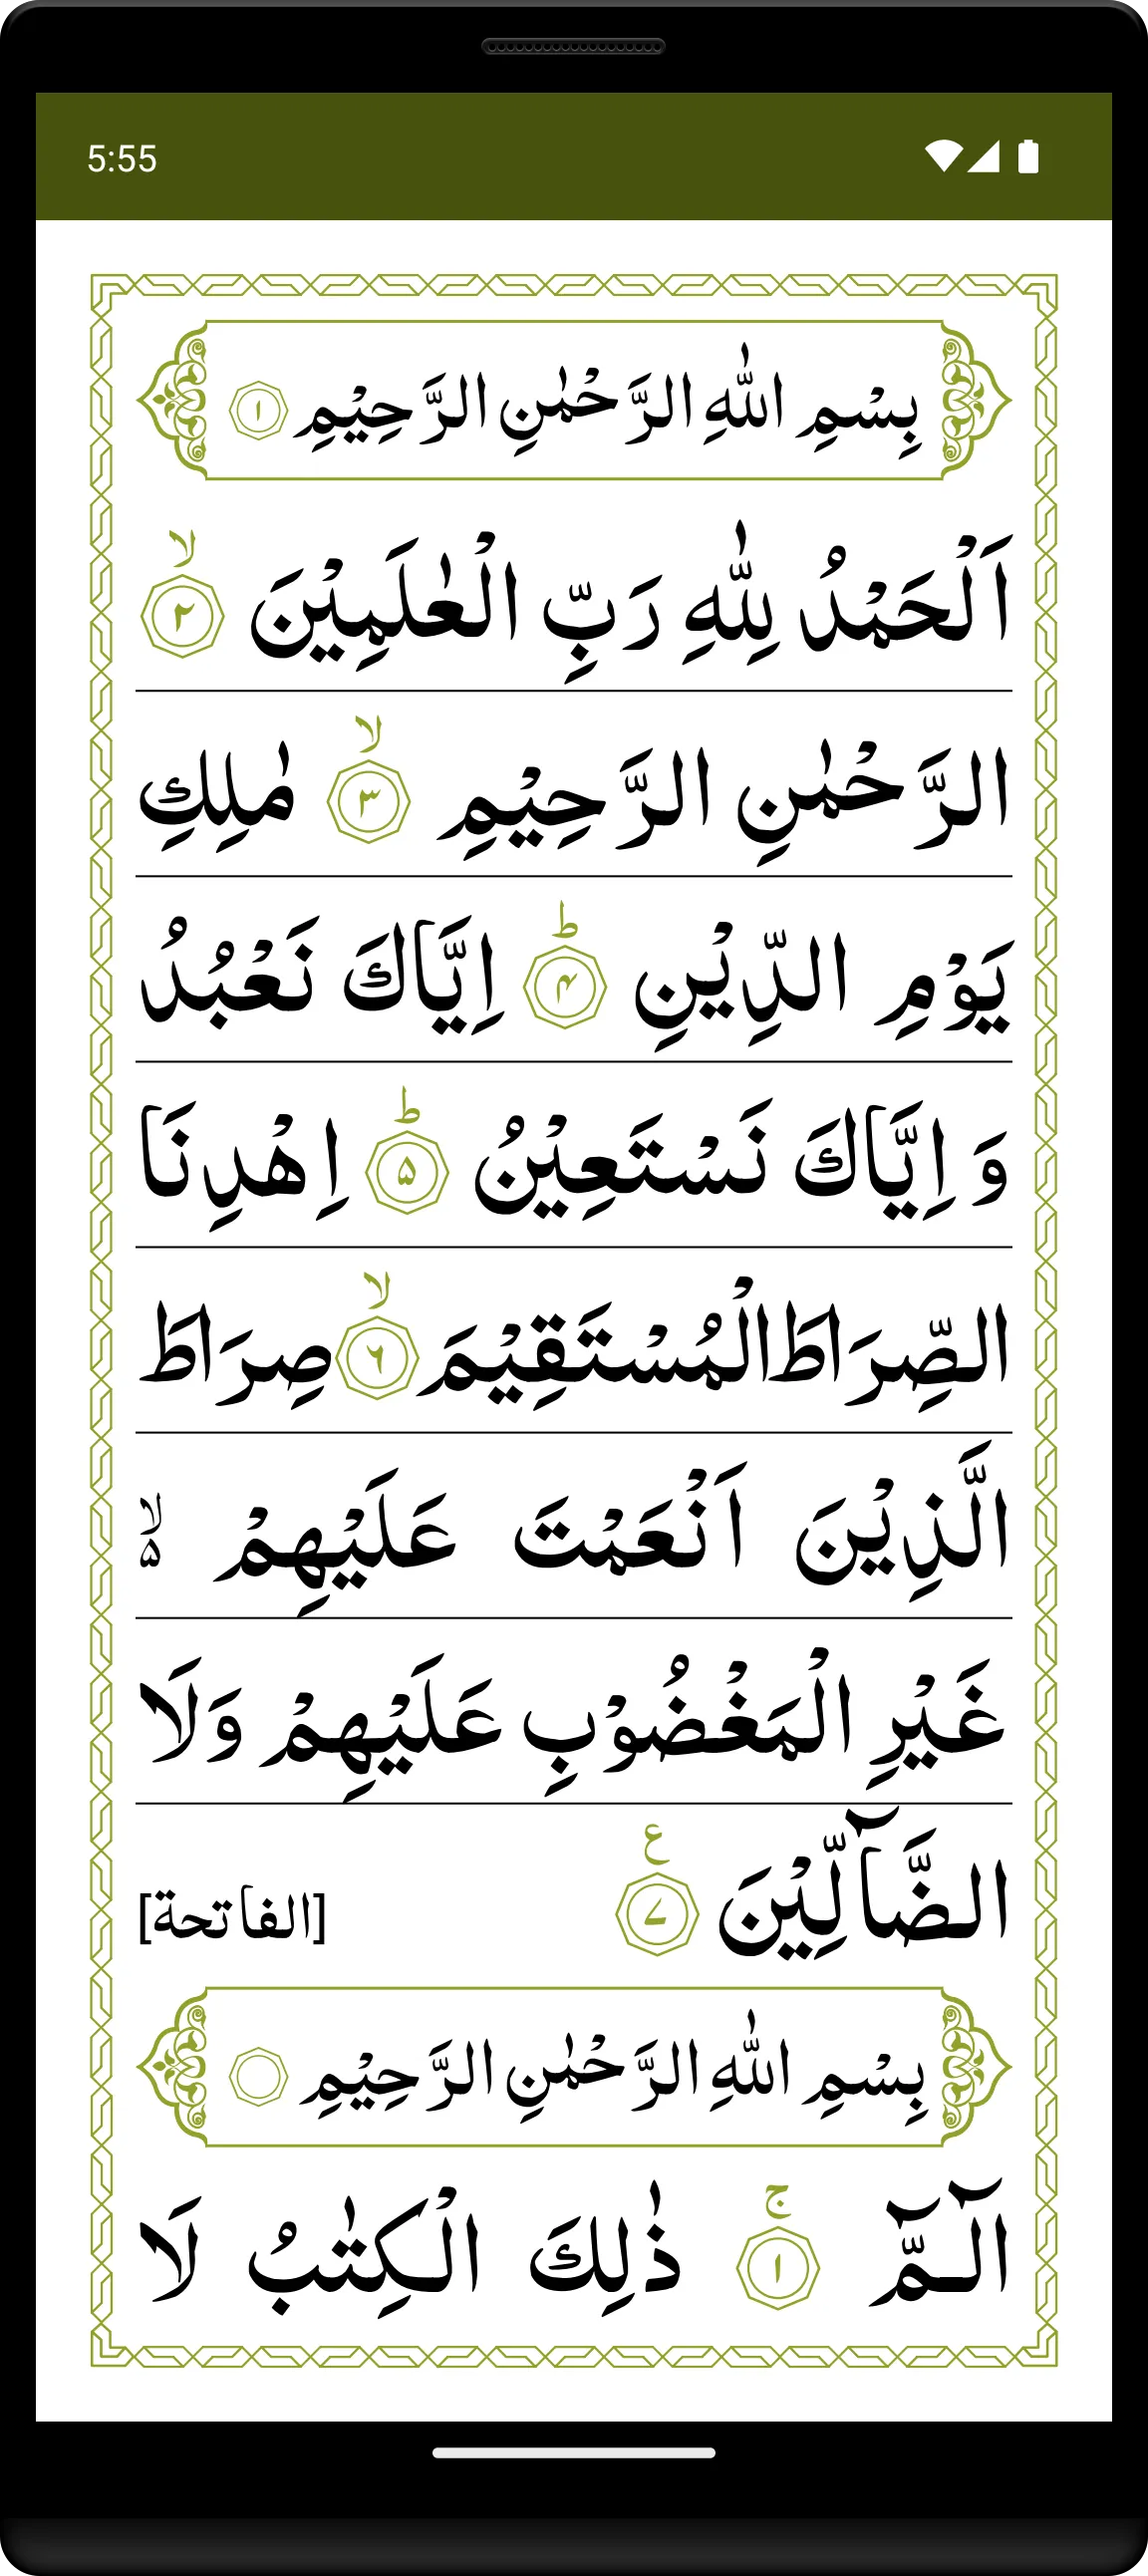 5:55
بِسْمِ اللّٰهِ الرَّحْمٰنِ الرَّحِيْمِ ۱
اَلْحَمْدُ لِلّٰهِ رَبِّ الْعٰلَمِيْنَ ۲ لا
الرَّحْمٰنِ الرَّحِيْمِ ۳ لا مٰلِكِ
يَوْمِ الدِّيْنِ ۴ ط اِيَّاكَ نَعْبُدُ
وَ اِيَّاكَ نَسْتَعِيْنُ ۵ ط اِهْدِنَا
الصِّرَاطَ الْمُسْتَقِيْمَ ۶ لا صِرَاطَ
الَّذِيْنَ اَنْعَمْتَ عَلَيْهِمْ لا ۵
غَيْرِ الْمَغْضُوْبِ عَلَيْهِمْ وَلَا
الضَّآلِّيْنَ ۷ ع [الفاتحة]
بِسْمِ اللّٰهِ الرَّحْمٰنِ الرَّحِيْمِ
الٓـمّٓ ۱ ج ذٰلِكَ الْكِتٰبُ لَا